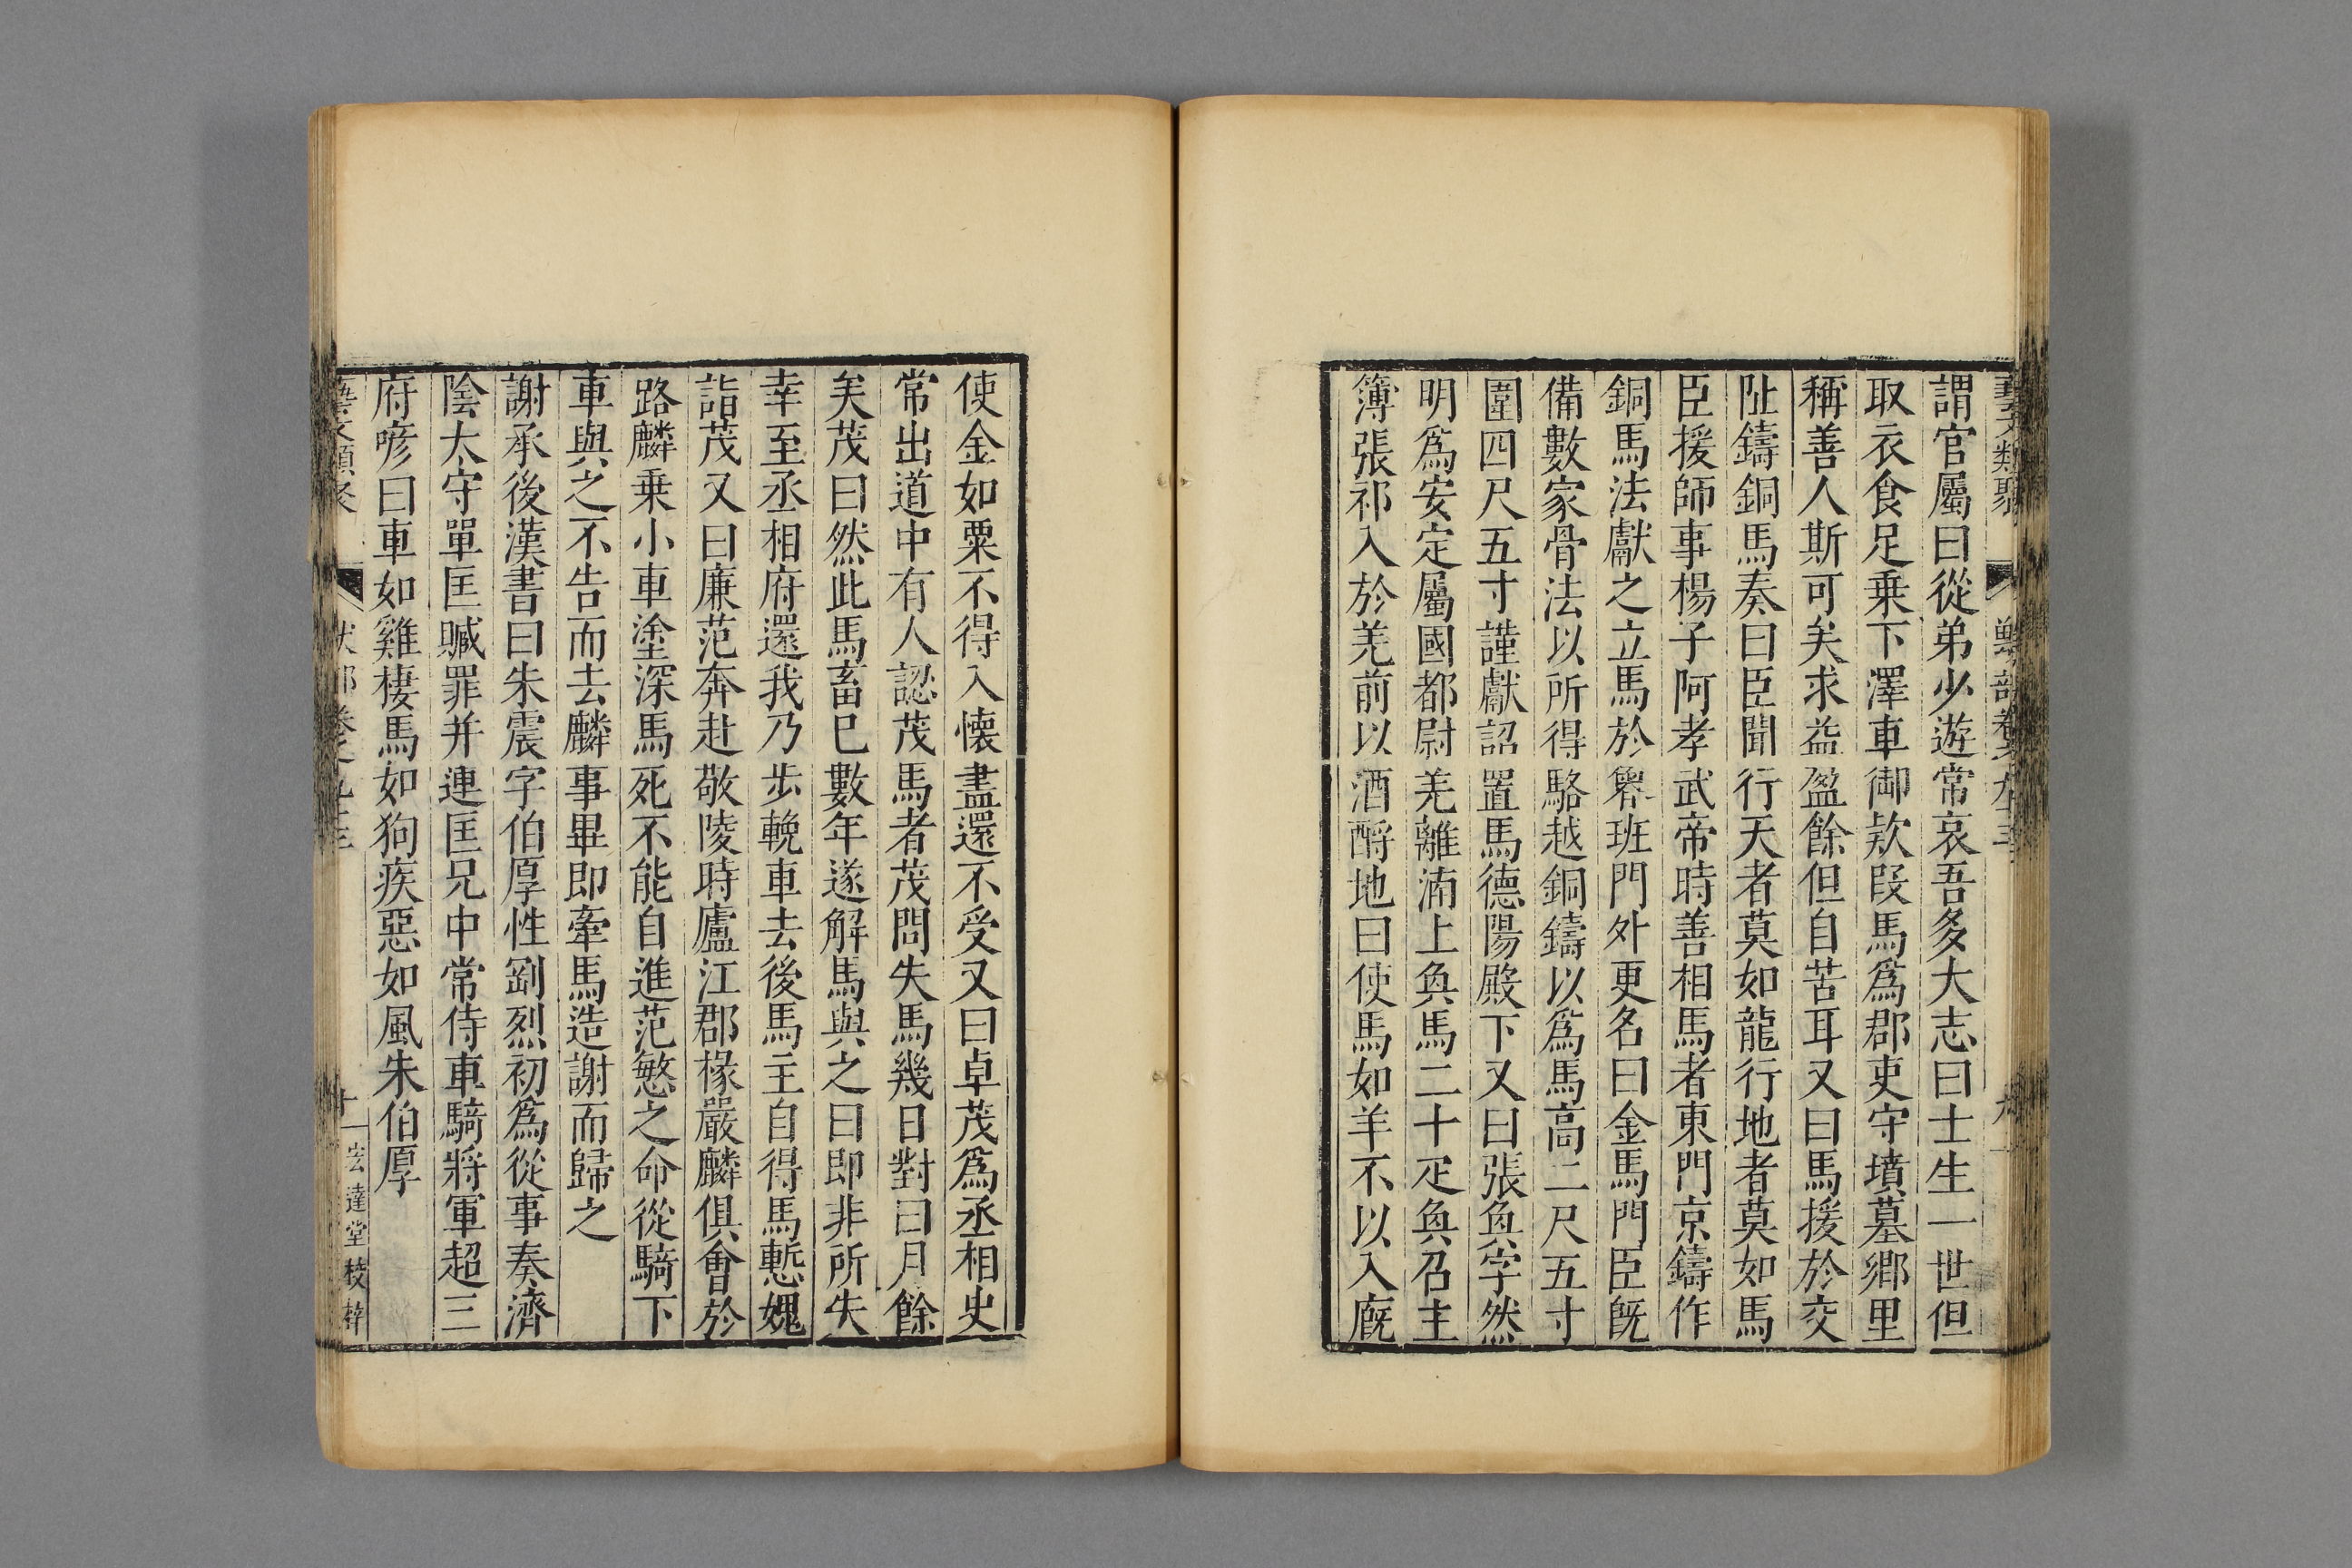 謂官屬曰從弟少遊常哀吾多大志曰士生一世但
取衣食足乗下澤車御欵叚馬爲郡吏守墳墓鄉里
稱善人斯可矣求益盈餘但自苦耳又曰馬援於交
阯鑄銅馬奏曰臣聞行天者莫如龍行地者莫如馬
臣援師事楊子阿孝武帝時善相馬者東門京鑄作
銅馬法獻之立馬於魯班門外更名曰金馬門臣旣
備數家骨法以所得駱越銅鑄以爲馬高二尺五寸
圍四尺五寸謹獻詔置馬德陽殿下又曰張奐字然
明爲安定屬國都尉羌離湳上奐馬二十疋奐召主
簿張祁入於羌前以酒酹地曰使馬如羊不以入廐
使金如粟不得入懐盡還不受又曰卓茂爲丞相史
常出道中有人認茂馬者茂問失馬幾日對曰月餘
矣茂曰然此馬畜巳數年遂解馬與之曰即非所失
幸至丞相府還我乃步輓車去後馬主自得馬慙媿
詣茂又曰廉范奔赴敬陵時廬江郡椽嚴麟俱會於
路麟乗小車塗深馬死不能自進范慜之命從騎下
車與之不告而去麟事畢即牽馬造謝而歸之
謝承後漢書曰朱震字伯厚性剛烈初爲從事奏濟
陰太守單匡贓罪并連匡兄中常侍車騎將軍超三
府喭曰車如雞棲馬如狗疾惡如風朱伯厚
宏達堂校梓